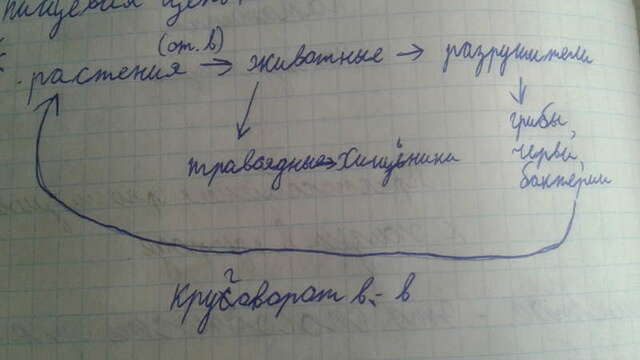 пищевая цепь
(от. в)
растения → животные → разрушители
травоядные → Хищники
грибы,
черви,
бактерии
Круговорот в-в